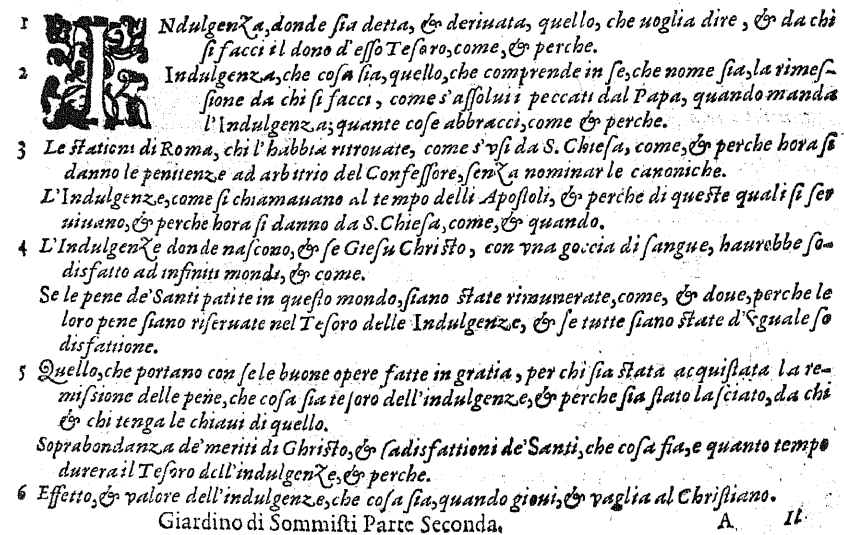 1 INdulgenza, donde ſia detta, & deriuata, quello, che uoglia dire, & da chi
ſi facci il dono d'eſſo Teſoro, come, & perche.
2 Indulgenza, che coſa ſia, quello, che comprende in ſe, che nome ſia, la rimeſ-
ſione da chi ſi facci, come s'aſſolui i peccati dal Papa, quando manda
l'Indulgenza; quante coſe abbracci, come & perche.
3 Le ſtationi di Roma, chi l'habbia ritrouate, come s'vſi da S. Chieſa, come, & perche hora ſi
danno le penitenze ad arbitrio del Confeſſore, ſenza nominar le canoniche.
L'Indulgenze, come ſi chiamauano al tempo delli Apoſtoli, & perche di queſte quali ſi ſer
uiuano, & perche hora ſi danno da S. Chieſa, come, & quando.
4 L'Indulgenze donde naſcono, & ſe Gieſu Chriſto, con vna goccia di ſangue, haurebbe ſo-
disfatto ad infiniti mondi, & come.
Se le pene de'Santi patite in queſto mondo, ſiano ſtate rimunerate, come, & doue, perche le
loro pene ſiano riſeruate nel Teſoro delle Indulgenze, & ſe tutte ſiano ſtate d'vguale ſo
disfattione.
5 Quello, che portano con ſe le buone opere fatte in gratia, per chi ſia ſtata acquiſtata la re-
miſſione delle pene, che coſa ſia teſoro dell'indulgenze, & perche ſia ſtato laſciato, da chi
& chi tenga le chiaui di quello.
Soprabondanza de'meriti di Ghriſto, & ſadisfattioni de'Santi, che coſa ſia, e quanto tempo
durera il Teſoro dell'indulgenze, & perche.
6 Effetto, & valore dell'indulgenze, che coſa ſia, quando gioui, & vaglia al Chriſtiano.
Giardino di Sommiſti Parte Seconda. A Il